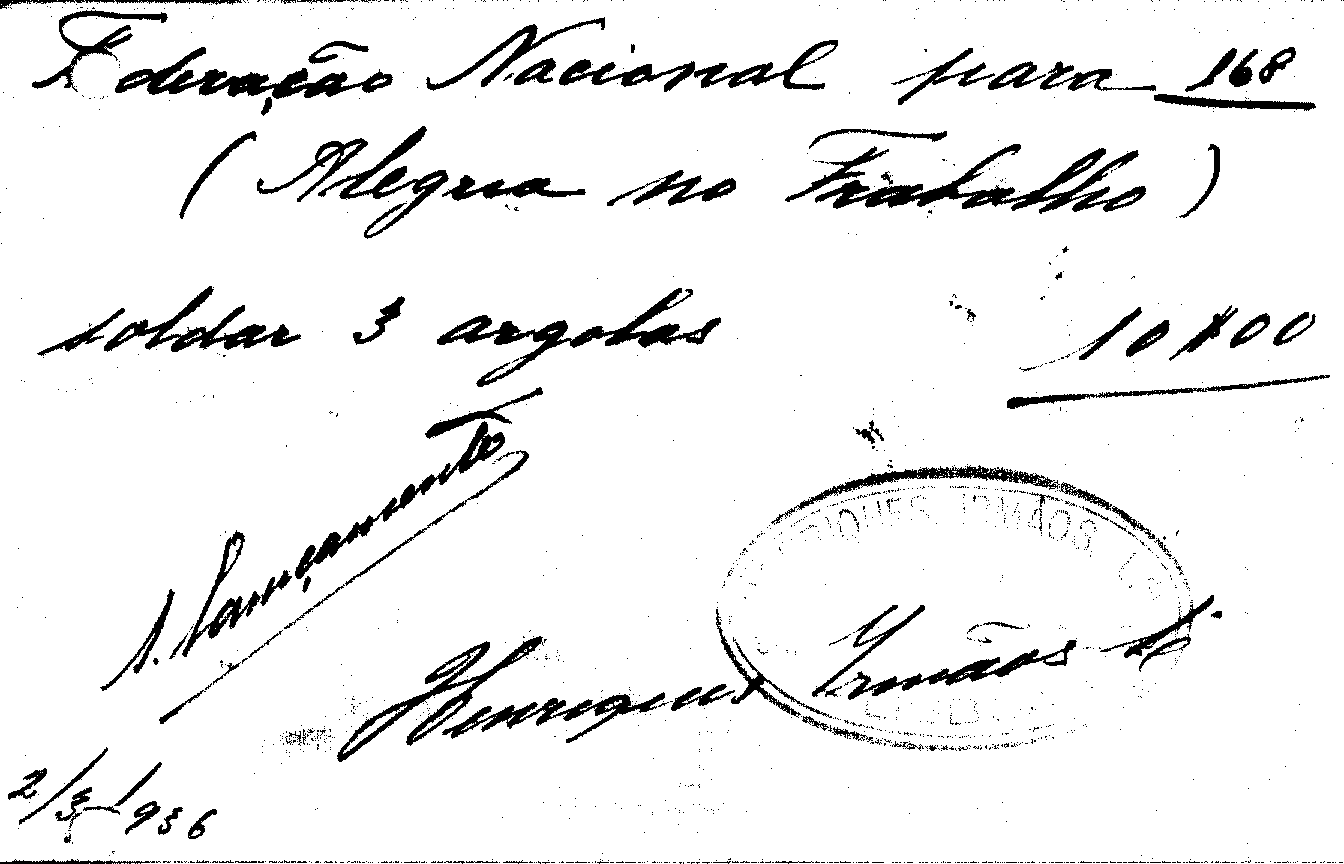 Federação Nacional para 168
(Alegria no Trabalho)
soldar 3 argolas 10$00
s. lançamento
HENRIQUES IRMÃOS L.DA
Henriques Irmãos Ld.
2/3/1936